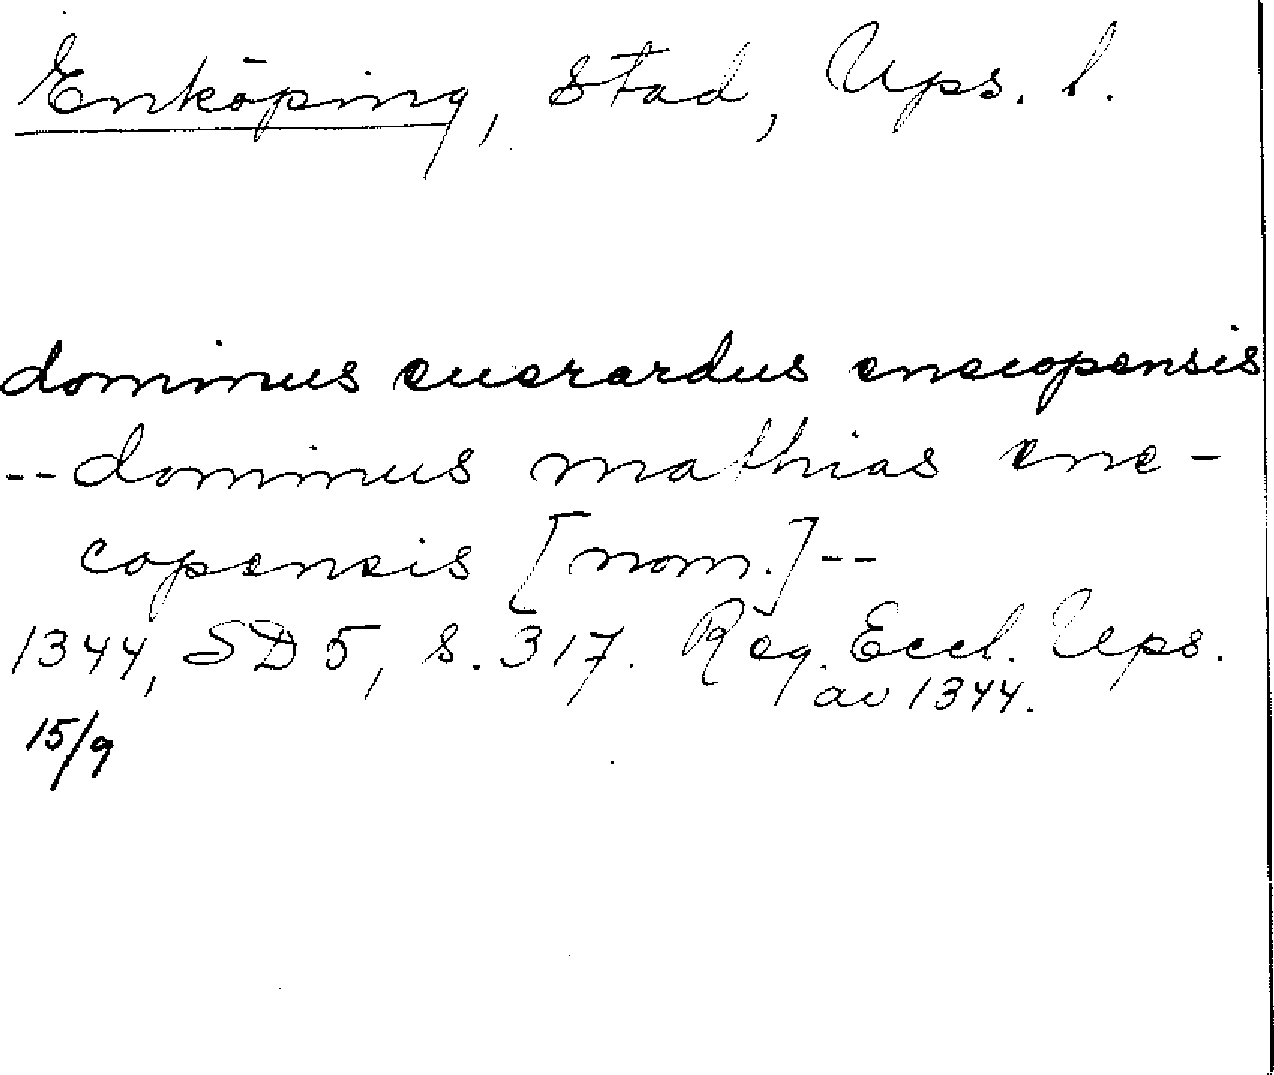 Enköping, stad, Ups. l.
dominus euerardus enecopensis
-- dominus mathias ene-
copensis [nom.] --
1344, SD 5, s. 317. Reg. Eccl. Ups.
av 1344.
15/9